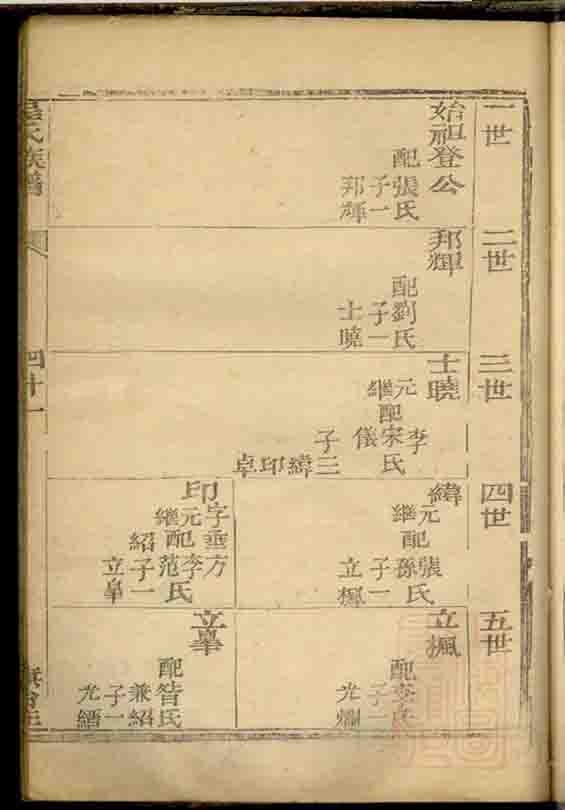 一世
始祖登公
配張氏
子一
邦輝
二世
邦輝
配劉氏
子一
士曉
三世
士曉
元李
繼配宋氏
儀
子三
緯印卓
四世
緯
元張
繼配孫氏
子一
立楓
印
字垂方
元李
繼配范氏
紹子一
立皐
五世
立楓
配李氏
子一
光
立皐
配昝氏
兼紹
子一
光縉
吳氏族譜
四十一